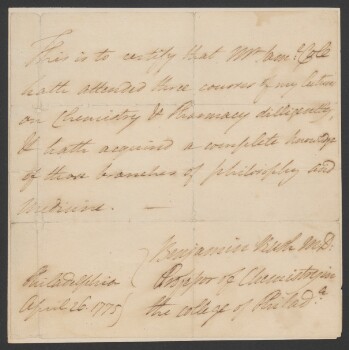 This is to certify that Mr Cole
hath attended three courses of my lectures
on Chemistry & Pharmacy dilligently,
& hath acquired a complete knowledge
of those branches of philosophy and
medicine. —
Benjamin Rush M.D:
Professor of Chemistry in
the College of Philad.ª
Philadelphia
April 26. 1775